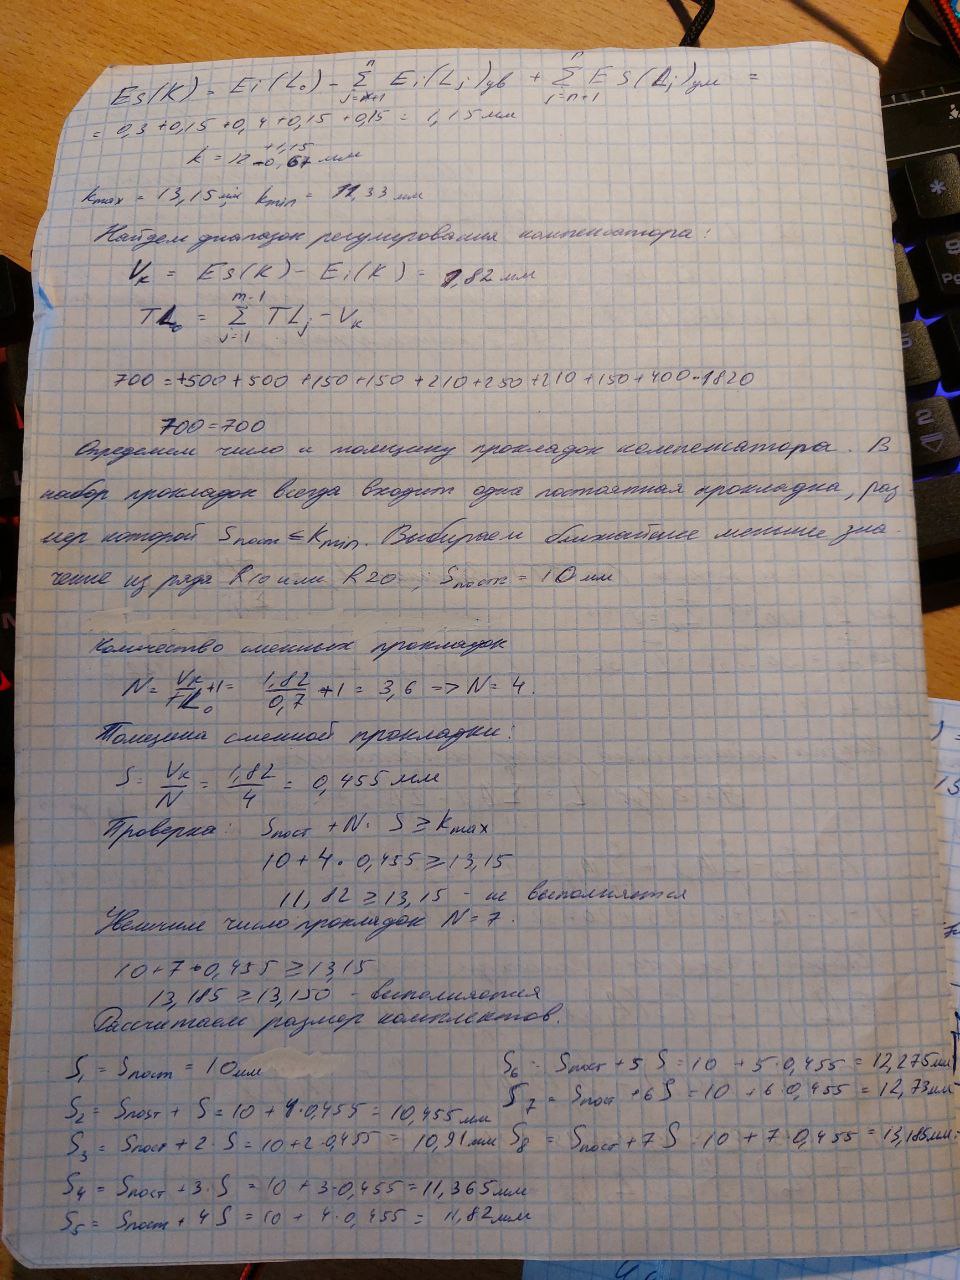 Es(K) = Ei(L₀) - Σ Ei(Lj)ув + Σ Es(Lj)ум =
= 0,3 + 0,15 + 0,4 + 0,15 + 0,15 = 1,15 мм
k = 12 +1,15 -0,67 мм
kmax = 13,15 мм kmin = 11,33 мм
Найдем диапазон регулирования компенсатора:
Vк = Es(K) - Ei(K) = 1,82 мм
TL₀ = Σ TLj - Vк
700 = +500 + 500 + 150 + 150 + 210 + 250 + 210 + 150 + 400 - 1820
700 = 700
Определим число и толщину прокладок компенсатора. В
набор прокладок всегда входит одна постоянная прокладка, раз-
мер которой Sпост ≤ Kmin. Выбираем ближайшее меньшее зна-
чение из ряда R10 или R20; Sпост = 10 мм
Количество сменных прокладок
N = Vк/TL₀ + 1 = 1,82/0,7 + 1 = 3,6 => N = 4.
Толщина сменной прокладки:
S = Vк/N = 1,82/4 = 0,455 мм
Проверка: Sпост + N · S ≥ kmax
10 + 4 · 0,455 ≥ 13,15
11,82 ≥ 13,15 - не выполняется
Увеличим число прокладок N = 7.
10 + 7 · 0,455 ≥ 13,15
13,185 ≥ 13,150 - выполняется
Рассчитаем размер комплектов.
S₁ = Sпост = 10 мм
S₂ = Sпост + S = 10 + 1·0,455 = 10,455 мм
S₃ = Sпост + 2·S = 10 + 2·0,455 = 10,91 мм
S₄ = Sпост + 3·S = 10 + 3·0,455 = 11,365 мм
S₅ = Sпост + 4S = 10 + 4·0,455 = 11,82 мм
S₆ = Sпост + 5S = 10 + 5·0,455 = 12,275 мм
S₇ = Sпост + 6S = 10 + 6·0,455 = 12,73 мм
S₈ = Sпост + 7S = 10 + 7·0,455 = 13,185 мм